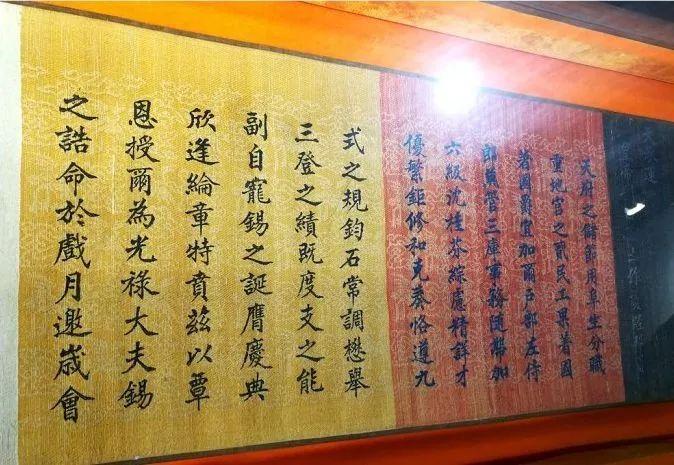 天府之儲節用阜生分職
重地官之貳民
爵宜加爾戶部左侍
郎兼管三庫事務隨帶加
六級沈桂芬綜慮精詳才
優繁鉅修和克奏恪遵九
式之規鈞石常調懋舉
三登之績既度支之能
副自寵錫之誕膺慶典
欣逢綸章特賁茲以覃
恩授爾為光祿大夫錫
之誥命於戲月邀歲會